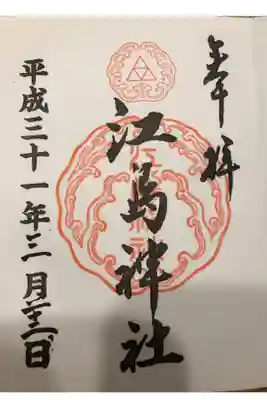 奉拝
江島神社
平成三十一年二月二十三日